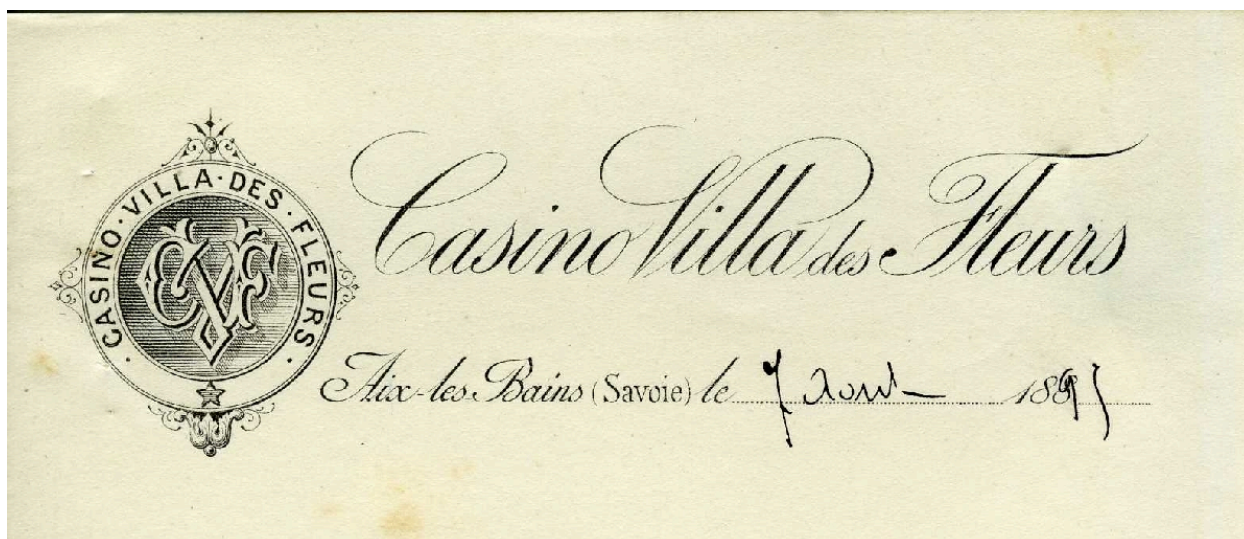 CASINO·VILLA·DES·FLEURS
CVF
Casino Villa des Fleurs
Aix-les-Bains (Savoie) le 7 Aout 1895